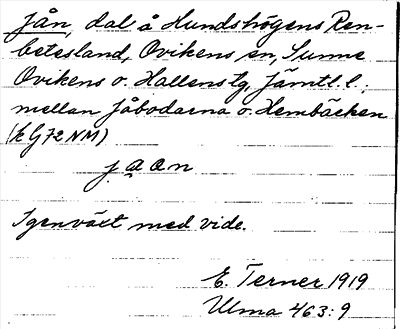 Jån, dal å Hundshögens Ren-
betesland, Ovikens sn, Sunne
Ovikens o. Hallens tg, Jämtl. l.,
mellan Jåbodarna o. Hembäcken
(k G 72 NM)
jaan
Igenväxt med vide.
E. Terner 1919
Ulma 463:9